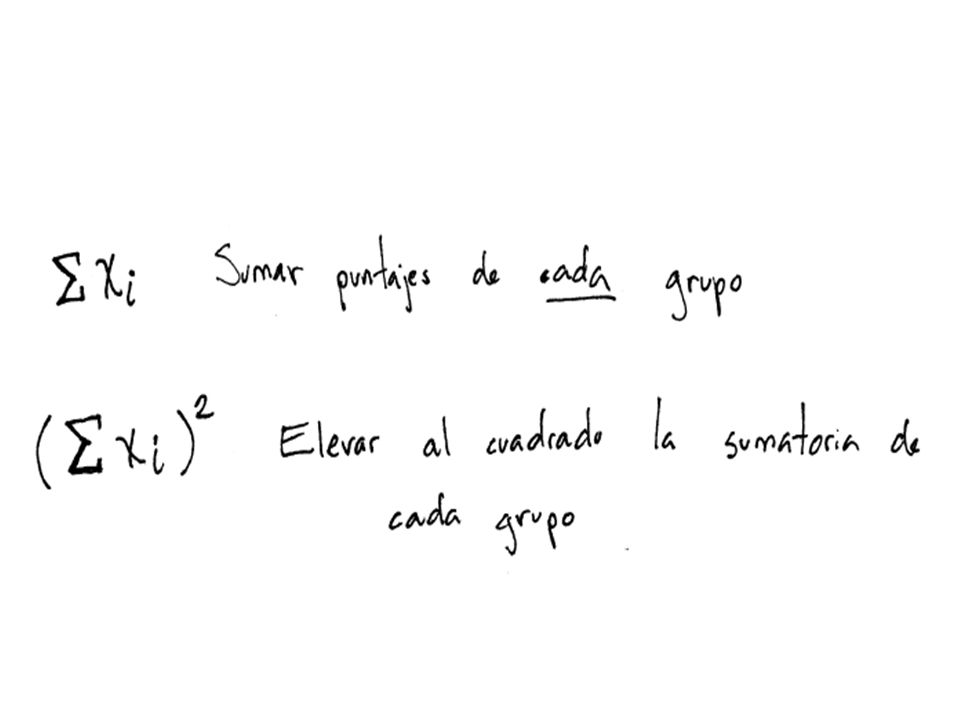 Σxi Sumar puntajes de cada grupo
(Σxi)² Elevar al cuadrado la sumatoria de
cada grupo